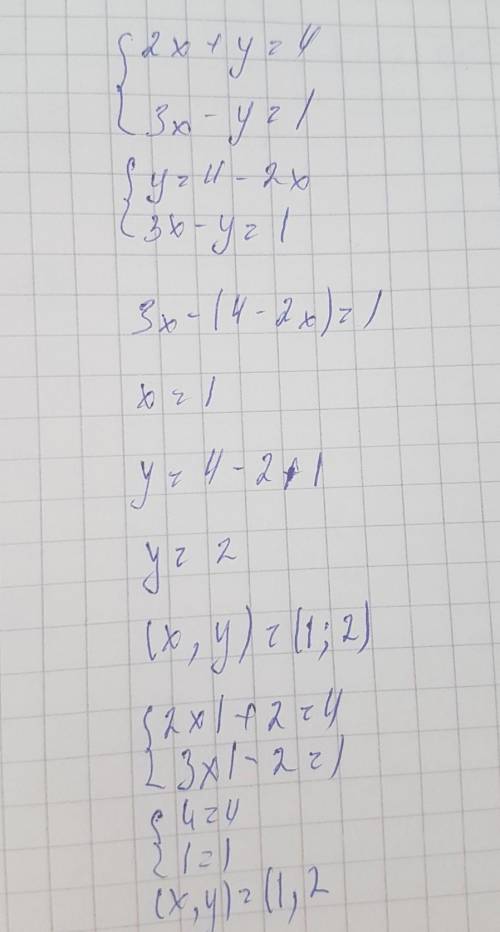 {2x + y = 4
{3x - y = 1
{y = 4 - 2x
{3x - y = 1
3x - (4 - 2x) = 1
x = 1
y = 4 - 2 · 1
y = 2
(x, y) = (1; 2)
{2x1 + 2 = 4
{3x1 - 2 = 1
{4 = 4
{1 = 1
(x, y) = (1, 2